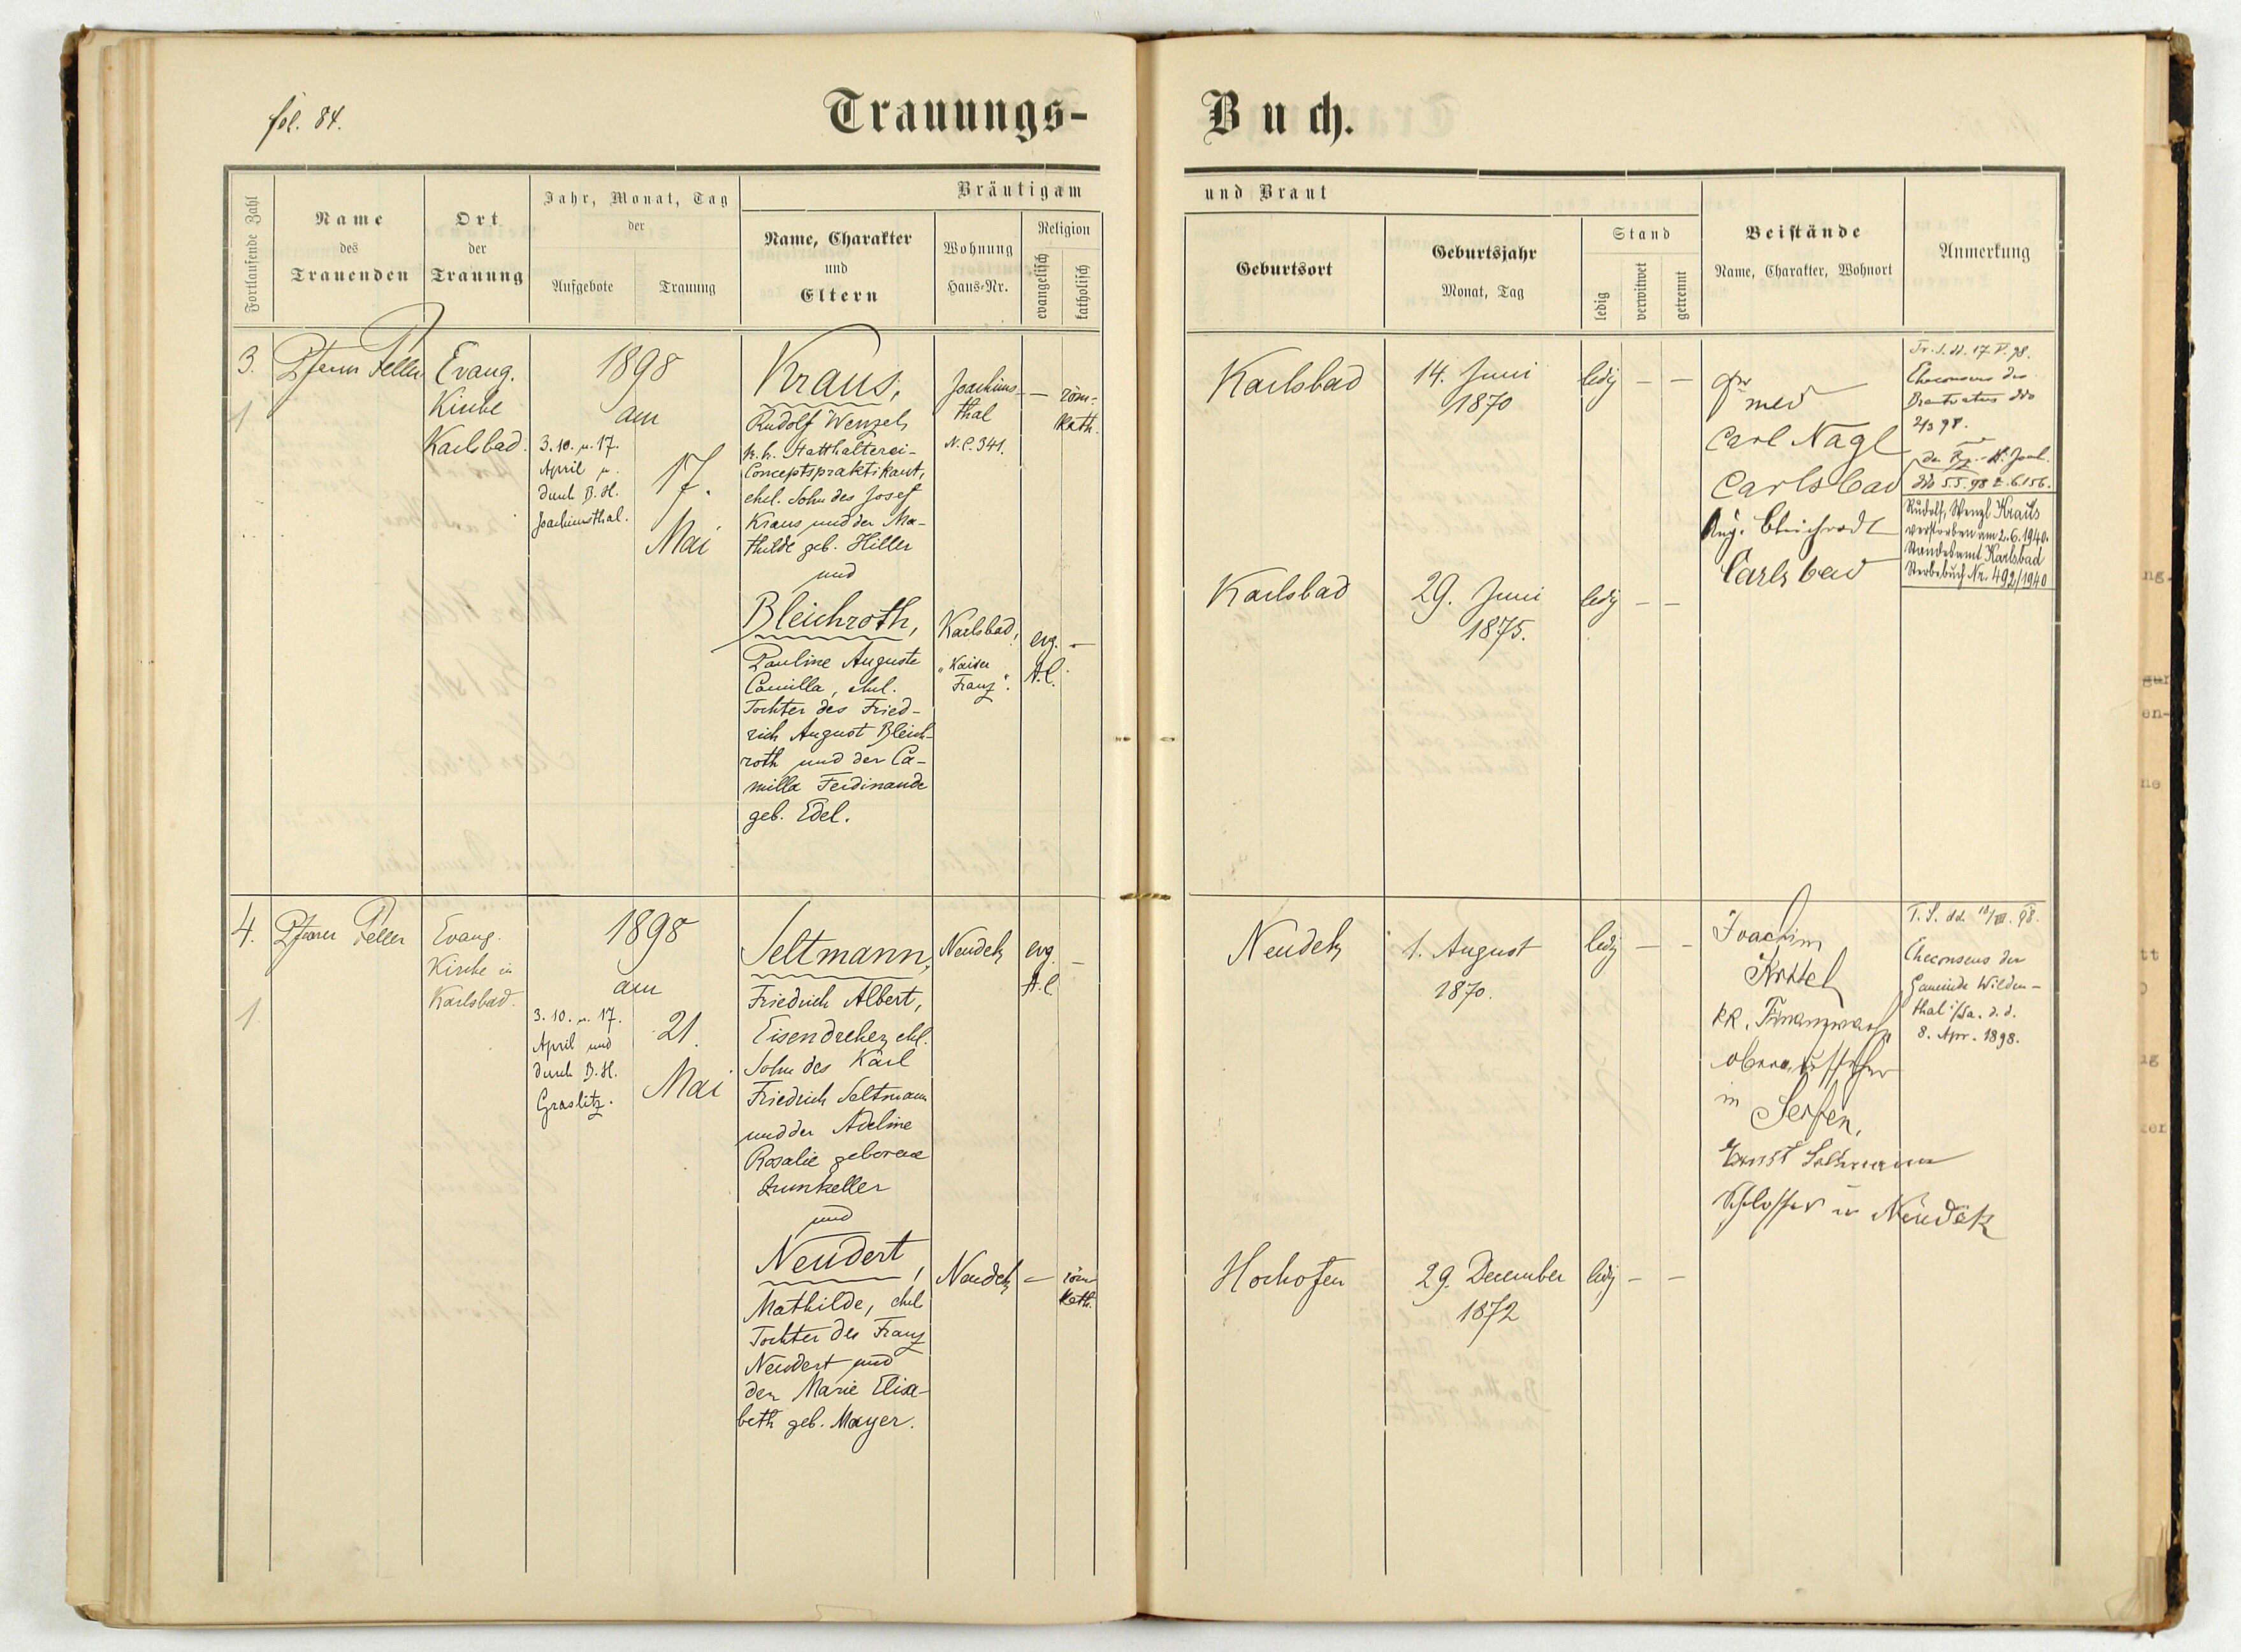 fol. 84.
Trauungs-
Buch.
Fortlaufende Zahl
Name
des
Trauenden
Ort
der
Trauung
Jahr, Monat, Tag
der
Aufgebote
Trauung
Bräutigam
Name, Charakter
und
Eltern
Wohnung
Haus-Nr.
Religion
evangelisch
katholisch
und Braut
Geburtsort
Geburtsjahr
Monat, Tag
Stand
ledig
verwitwet
getrennt
Beistände
Name, Charakter, Wohnort
Anmerkung
3.
1
Pfarrer Feller
Evang.
Kirche
Karlsbad.
1898
am
3. 10. u. 17.
April u.
durch B. H.
Joachimsthal.
17.
Mai
Kraus,
Rudolf Wenzel,
k. k. Statthalterei-
Conceptspraktikant,
ehel. Sohn des Josef
Kraus und der Ma-
thilde geb. Hiller
und
Bleichroth,
Pauline Auguste
Camilla, ehel.
Tochter des Fried-
rich August Bleich-
roth und der Ca-
milla Ferdinande
geb. Edel.
Joachims-
thal
N.C. 341.
— röm.-
kath.
Karlsbad,
"Kaiser
Franz".
evg. —
A.C.
Karlsbad
14. Juni
1870
ledig — —
Karlsbad
29. Juni
1875.
ledig — —
Dr
med
Carl Nagl
Carlsbad
Aug. Bleichrodt
Carlsbad
Tr. S. dd. 17. V. 98.
Eheconsens des
ddo
2/3 98.
ddo 5.5. 98 Z. 6156.
Rudolf, Wenzl Kraus
verstorben am 2.6.1940.
Standesamt Karlsbad
Sterbebuch Nr. 492/1940
4.
1
Pfarrer Feller
Evang.
Kirche in
Karlsbad.
1898
am
3. 10. u. 17.
April und
durch B. H.
Graslitz.
21.
Mai
Seltmann,
Friedrich Albert,
Eisendreher, ehl.
Sohn des Karl
Friedrich Seltmann
und der Adeline
Rosalie geborene
Unnkeller
und
Neudert,
Mathilde, ehel.
Tochter des Franz
Neudert und
der Marie Elisa-
beth geb. Mayer.
Neudek
evg. —
A.C.
Neudek
— röm
kath.
Neudek
1. August
1870.
ledig — —
Hochofen
29. December
1872
ledig — —
Joachim
kk. Finanzwach
oberaufseher
in Seifen,
Ernst Seltmann
Schlosser in Neudek
T. S. dd. 18/VIII. 98.
Eheconsens der
Gemeinde Wilden-
thal i/Sa. d. d.
8. Apr. 1898.